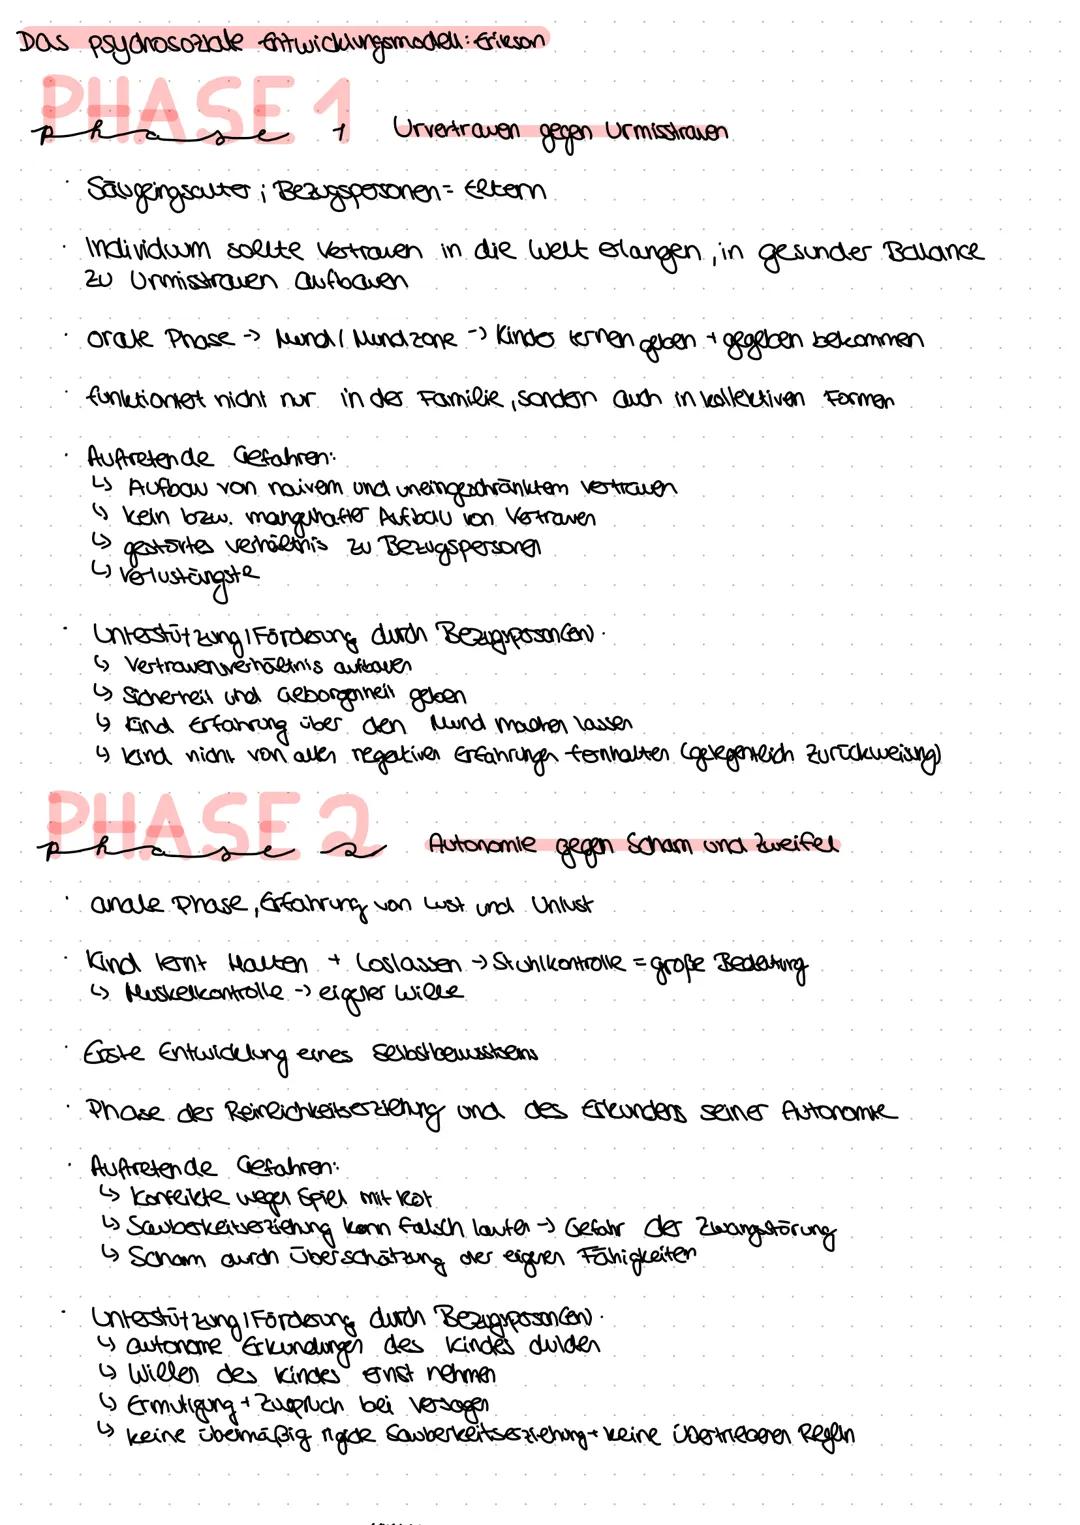 Das psychosoziale Entwicklungsmodell: Erikson
PHASE 1
phase 1 Urvertrauen gegen Urmisstrauen
· Säuglingsalter; Bezugspersonen = Eltern
· Individuum sollte Vertrauen in die Welt erlangen, in gesunder Balance
zu Urmisstrauen aufbauen
· orale Phase -> Mund / Mundzone -> Kinder lernen geben + gegeben bekommen
· funktioniert nicht nur in der Familie, sondern auch in kollektiven Formen
· Auftretende Gefahren:
↳ Aufbau von naivem und uneingeschränktem Vertrauen
↳ kein bzw. mangelhafter Aufbau von Vertrauen
↳ gestörtes Verhältnis zu Bezugspersonen
↳ Verlustängste
· Unterstützung / Förderung durch Bezugsperson(en):
↳ Vertrauensverhältnis aufbauen
↳ Sicherheit und Geborgenheit geben
↳ Kind Erfahrung über den Mund machen lassen
↳ Kind nicht von allen negativen Erfahrungen fernhalten (gelegentlich Zurückweisung)
PHASE 2
phase 2 Autonomie gegen Scham und Zweifel
· anale Phase, Erfahrung von Lust und Unlust
· Kind lernt Halten + Loslassen -> Stuhlkontrolle = große Bedeutung
↳ Muskelkontrolle -> eigener Wille
· Erste Entwicklung eines Selbstbewusstseins
· Phase der Reinlichkeitserziehung und des Erkundens seiner Autonomie
· Auftretende Gefahren:
↳ Konflikte wegen Spiel mit Kot
↳ Sauberkeitserziehung kann falsch laufen -> Gefahr der Zwangsstörung
↳ Scham durch Überschätzung der eigenen Fähigkeiten
· Unterstützung / Förderung durch Bezugsperson(en):
↳ autonome Erkundungen des Kindes dulden
↳ Willen des Kindes ernst nehmen
↳ Ermutigung + Zuspruch bei Versagen
↳ keine übermäßig rigide Sauberkeitserziehung + keine übertriebenen Regeln